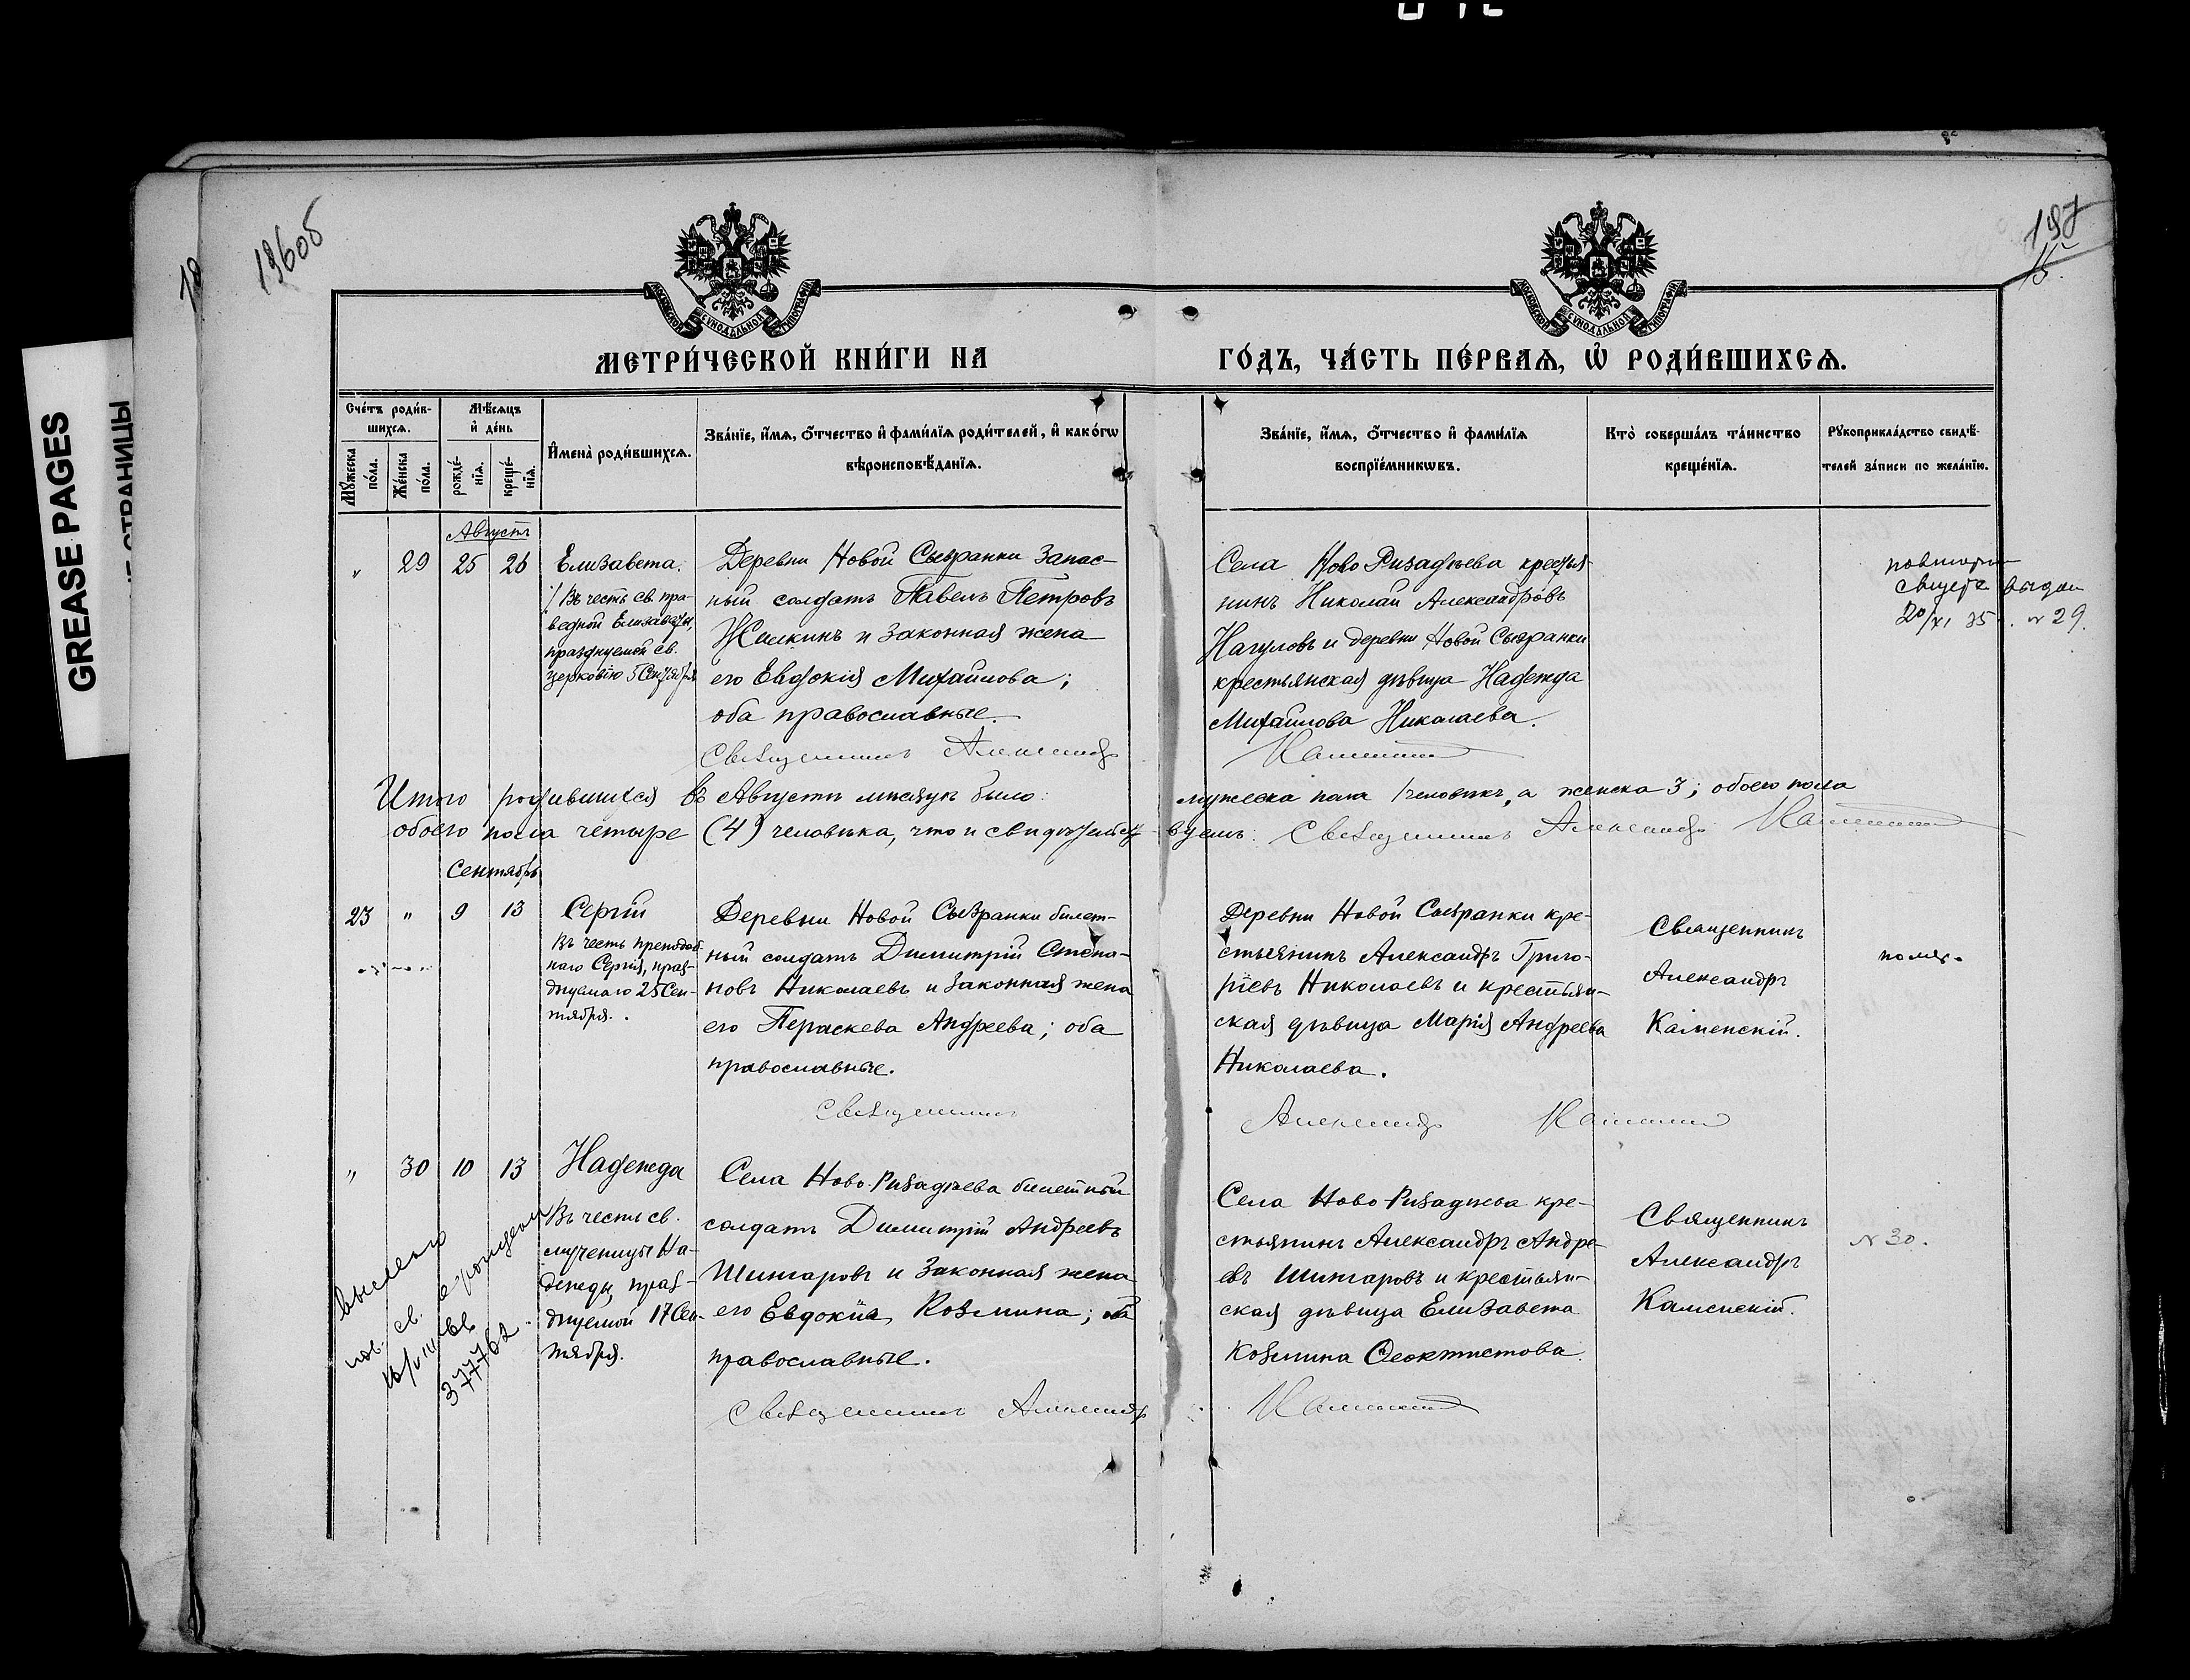 GREASE PAGES
196об
197
15.
МЕТРИ́ЧЕСКОЙ КНИ́ГИ НА ГО́ДЪ, ЧА́СТЬ ПЕ́РВАѦ, Ѡ҆ РОДИ́ВШИХСѦ.
Сче́тъ роди́в-
шихсѧ.
Мꙋ́жеска по́ла.
Же́нска по́ла.
Мѣ́сѧцъ
и҆ де́нь
рожде́-
нїѧ.
креще́-
нїѧ.
И҆мена̀ роди́вшихсѧ.
Зва́нїе, и҆́мѧ, ѻ҆́тчество и҆ фами́лїѧ роди́телей, и҆ како́гѡ
вѣроисповѣ́данїѧ.
Зва́нїе, и҆́мѧ, ѻ҆́тчество и҆ фами́лїѧ
воспрїе́мникѡвъ.
Кто̀ соверша́лъ та́инство
креще́нїѧ.
Рꙋкоприкла́дство свидѣ́-
телей за́писи по жела́нїю.
Августъ
" 29 25 26
Елизавета.
Въ честь св. пра-
ведной Елизаветы,
празднуемой св.
церковію 5 Сентября
Деревни Новой Сызранки запас-
ный солдатъ Павелъ Петровъ
Жилкинъ и законная жена
его Евдокія Михайлова;
оба православные.
Священникъ Александръ
Села Ново Ризадѣева крестья-
нинъ Николай Александровъ
Нагуловъ и деревни Новой Сызранки
крестьянская дѣвица Надежда
Михайлова Николаева.
Каменскій
выдан
20/XI 35 . № 29.
Итого родившихся въ Августѣ мѣсяцѣ было: мужеска пола 1 человѣкъ, а женска 3; обоего пола
обоего пола четыре (4) человѣка, что и свидѣтельст- вуемъ: Священникъ Александръ Каменскій
Сентябрь
23 " 9 13
Сергій
Въ честь преподоб-
наго Сергія, праз-
днуемаго 25 Сен-
тября.
Деревни Новой Сызранки билет-
ный солдатъ Димитрій Степа-
новъ Николаевъ и законная жена
его Пераскева Андреева; оба
православные.
Священникъ
Деревни Новой Сызранки кре-
стьянинъ Александръ Григо-
ріевъ Николаевъ и крестьян-
ская дѣвица Марія Андреева
Николаева.
Александръ Каменскій
Священникъ
Александръ
Каменскій.
" 30 10 13
Надежда
Въ честь св.
мученицы На-
дежды, праз-
днуемой 17 Сен-
тября.
Села Ново-Ризадѣева билетный
солдатъ Димитрій Андреевъ
Шингаровъ и законная жена
его Евдокія Козмина; оба
православные.
Священникъ Александръ
Села Ново-Ризадѣева кре-
стьянинъ Александръ Андре-
евъ Шингаровъ и крестьян-
ская дѣвица Елизавета
Козмина Ѳеоктистова.
Каменскій
Священникъ
Александръ
Каменскій.
№ 30.
377762